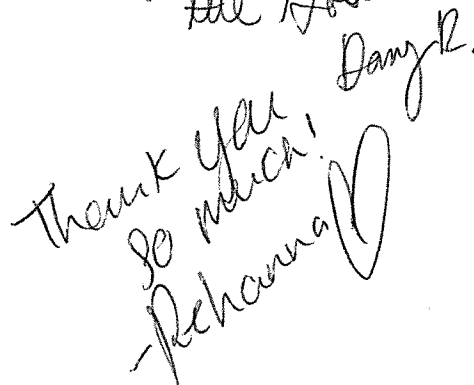 the
Dany R.
Thank you
so much!
-Rehanna